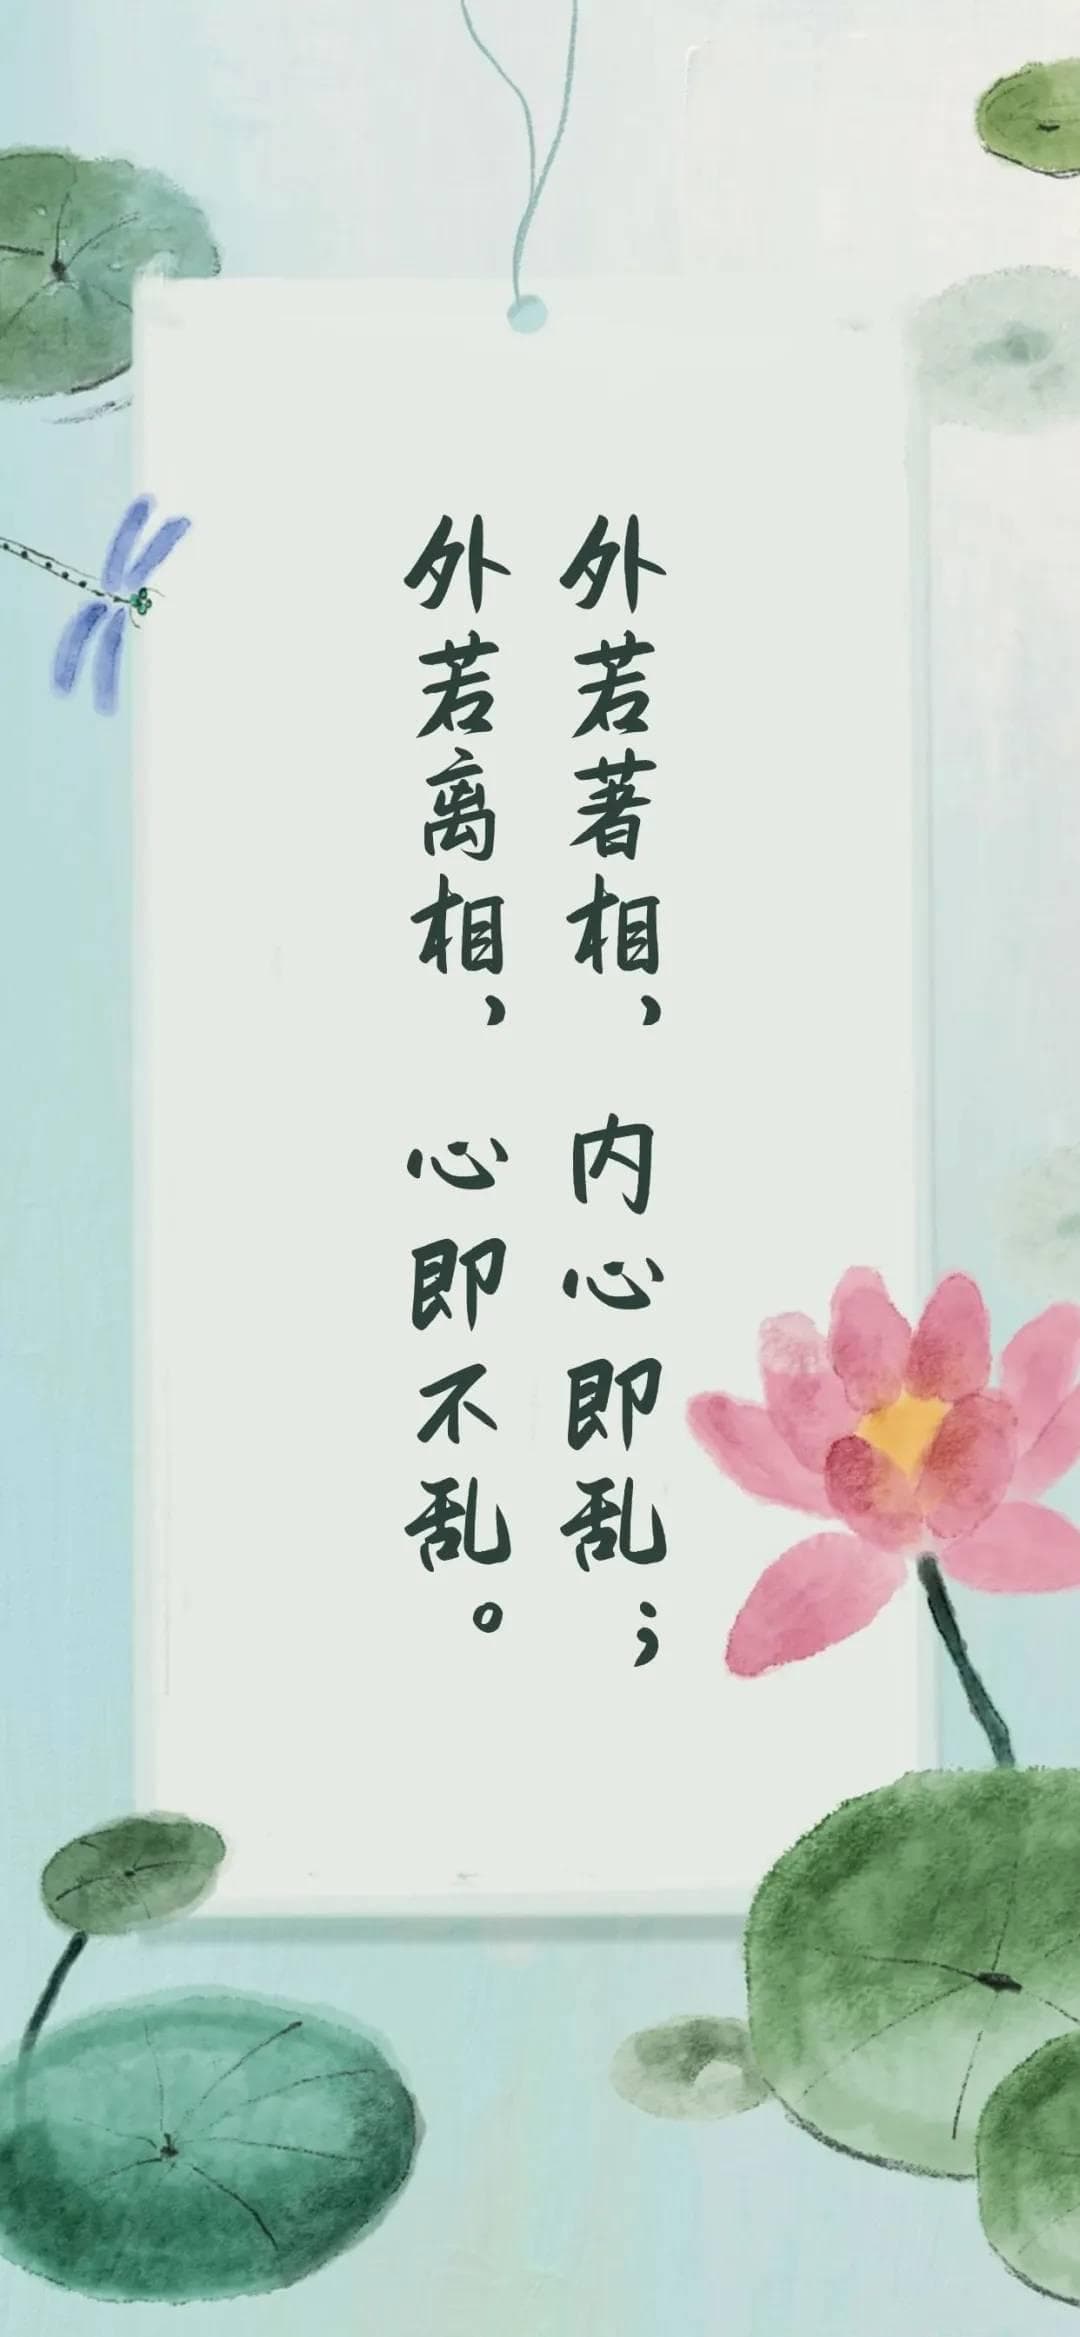 外若著相，内心即乱；
外若离相，心即不乱。